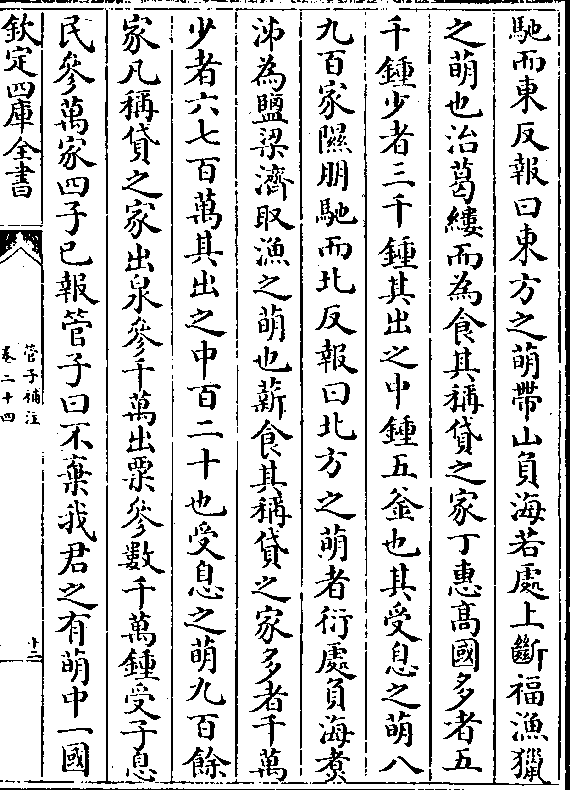 馳而東反報曰東方之萌帶山負海若處上斷福漁獵
之萌也治葛縷而為食其稱貸之家丁惠髙國多者五
千鍾少者三千鍾其出之中鍾五釜也其受息之萌八
九百家隰朋馳而北反報曰北方之萌者衍處負海煑
沛為鹽梁濟取漁之萌也薪食其稱貸之家多者千萬
少者六七百萬其出之中百二十也受息之萌九百餘
家凡稱貸之家出泉參千萬出粟參數千萬鍾受子息
民參萬家四子已報管子曰不棄我君之有萌中一國
欽定四庫全書
管子補注
卷二十四
十三